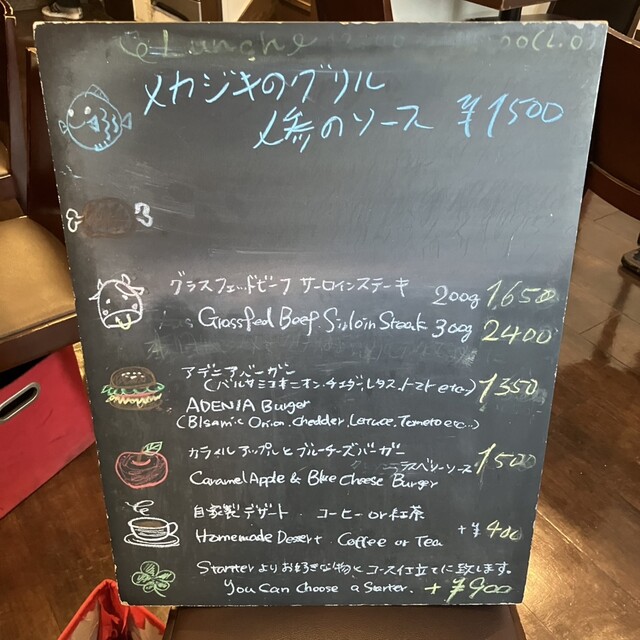 Lunch
メカジキのグリル
のソース ¥1500
グラスフェッドビーフ サーロインステーキ 200g 1650
Grassfed Beef Sirloin Steak 300g 2400
アデニアバーガー
(バルサミコオニオン.チェダー.レタス.トマト etc.) 1350
ADENIA Burger
(Blsamic Onion. chedder. Letuce. Tomato etc...)
カラメルアップルとブルーチーズバーガー
ラズベリーソース 1500
Caramel Apple & Blue Cheese Burger
自家製デザート . コーヒー or 紅茶
Homemade Desert . Coffee or Tea +¥400
Starter よりお好きな物とコース仕立てに致します。
You Can Choose a Starter. +¥900